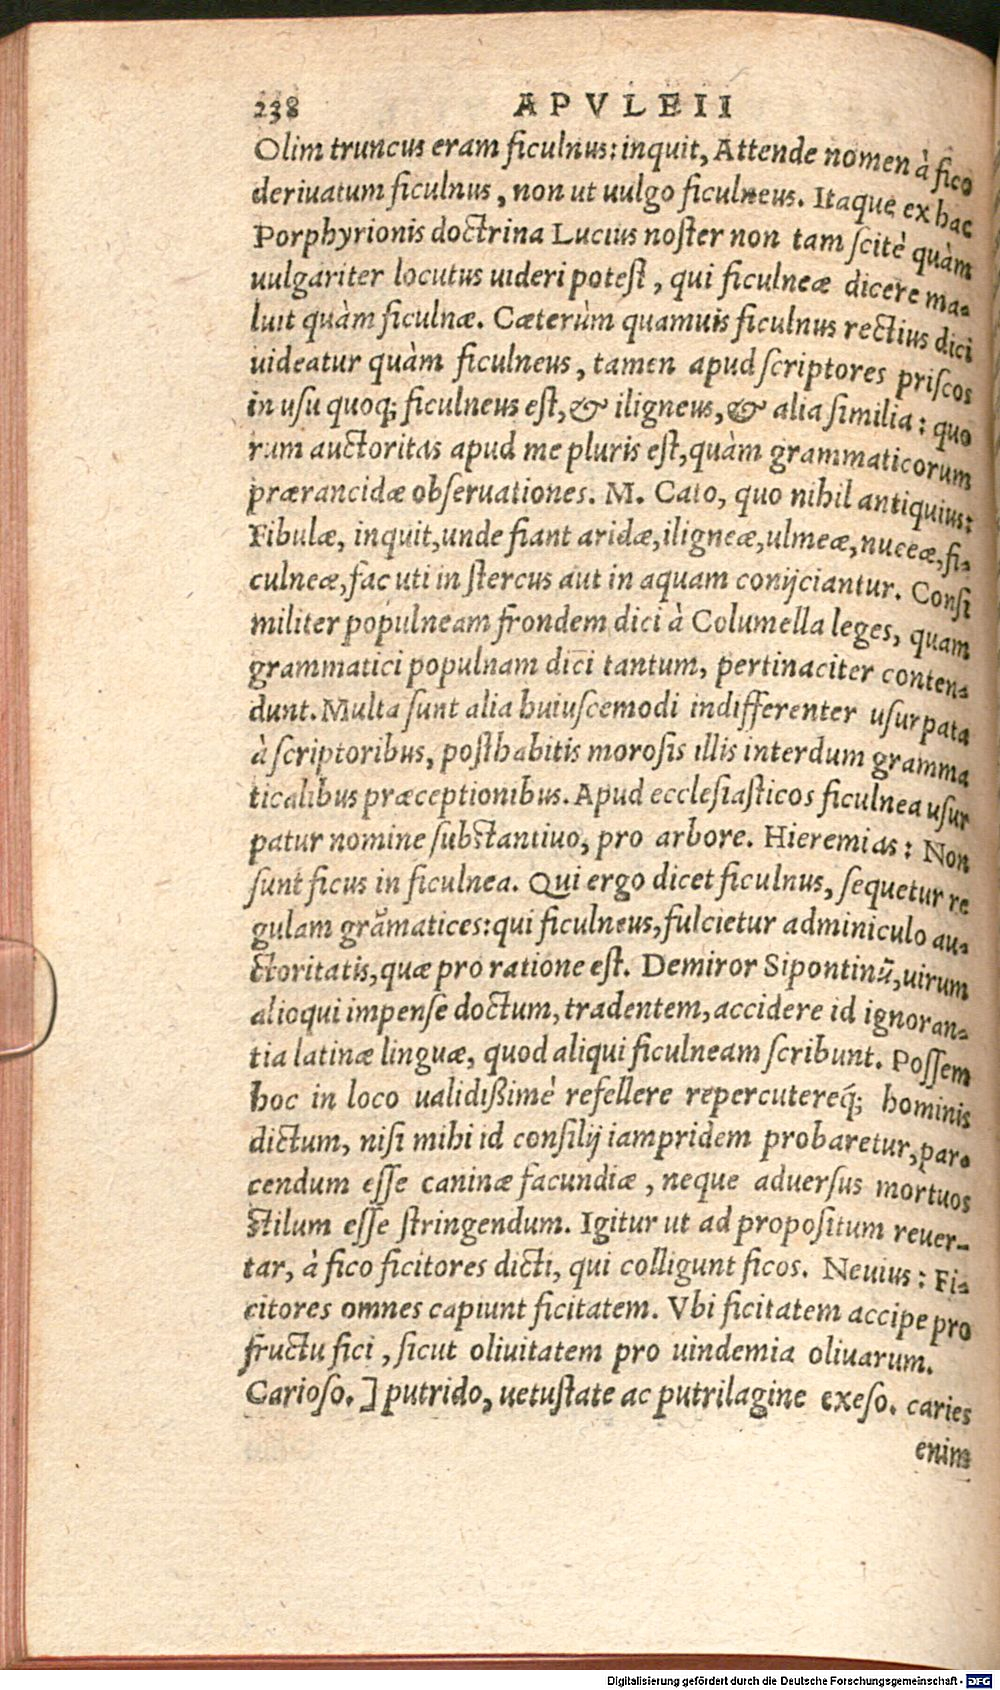 238 APVLEII
Olim truncus eram ficulnus: inquit, Attende nomen à fico
deriuatum ficulnus, non ut uulgo ficulneus. Itaque ex hac
Porphyrionis doctrina Lucius noster non tam scitè quàm
uulgariter locutus uideri potest, qui ficulneæ dicere ma-
luit quàm ficulnæ. Cæterùm quamuis ficulnus rectius dici
uideatur quàm ficulneus, tamen apud scriptores priscos
in usu quoq; ficulneus est, & iligneus, & alia similia: quo
rum auctoritas apud me pluris est, quàm grammaticorum
prærancidæ obseruationes. M. Cato, quo nihil antiquius:
Fibulæ, inquit, unde fiant aridæ, iligneæ, ulmeæ, nuceæ, fi-
culneæ, fac uti in stercus aut in aquam conijciantur. Consi
militer populneam frondem dici à Columella leges, quam
grammatici populnam dici tantum, pertinaciter conten-
dunt. Multa sunt alia huiuscemodi indifferenter usurpata
à scriptoribus, posthabitis morosis illis interdum gramma
ticalibus præceptionibus. Apud ecclesiasticos ficulnea usur
patur nomine substantiuo, pro arbore. Hieremias: Non
sunt ficus in ficulnea. Qui ergo dicet ficulnus, sequetur re
gulam grãmatices: qui ficulneus, fulcietur adminiculo au-
ctoritatis, quæ pro ratione est. Demiror Sipontinũ, uirum
alioqui impense doctum, tradentem, accidere id ignoran-
tia latinæ linguæ, quod aliqui ficulneam scribunt. Possem
hoc in loco ualidißimè refellere repercutereq́; hominis
dictum, nisi mihi id consilij iampridem probaretur, par-
cendum esse caninæ facundiæ, neque aduersus mortuos
stilum esse stringendum. Igitur ut ad propositum reuer-
tar, à fico ficitores dicti, qui colligunt ficos. Neuius: Fi-
citores omnes capiunt ficitatem. Vbi ficitatem accipe pro
fructu fici, sicut oliuitatem pro uindemia oliuarum.
Carioso.] putrido, uetustate ac putrilagine exeso. caries
enim
Digitalisierung gefördert durch die Deutsche Forschungsgemeinschaft - DFG